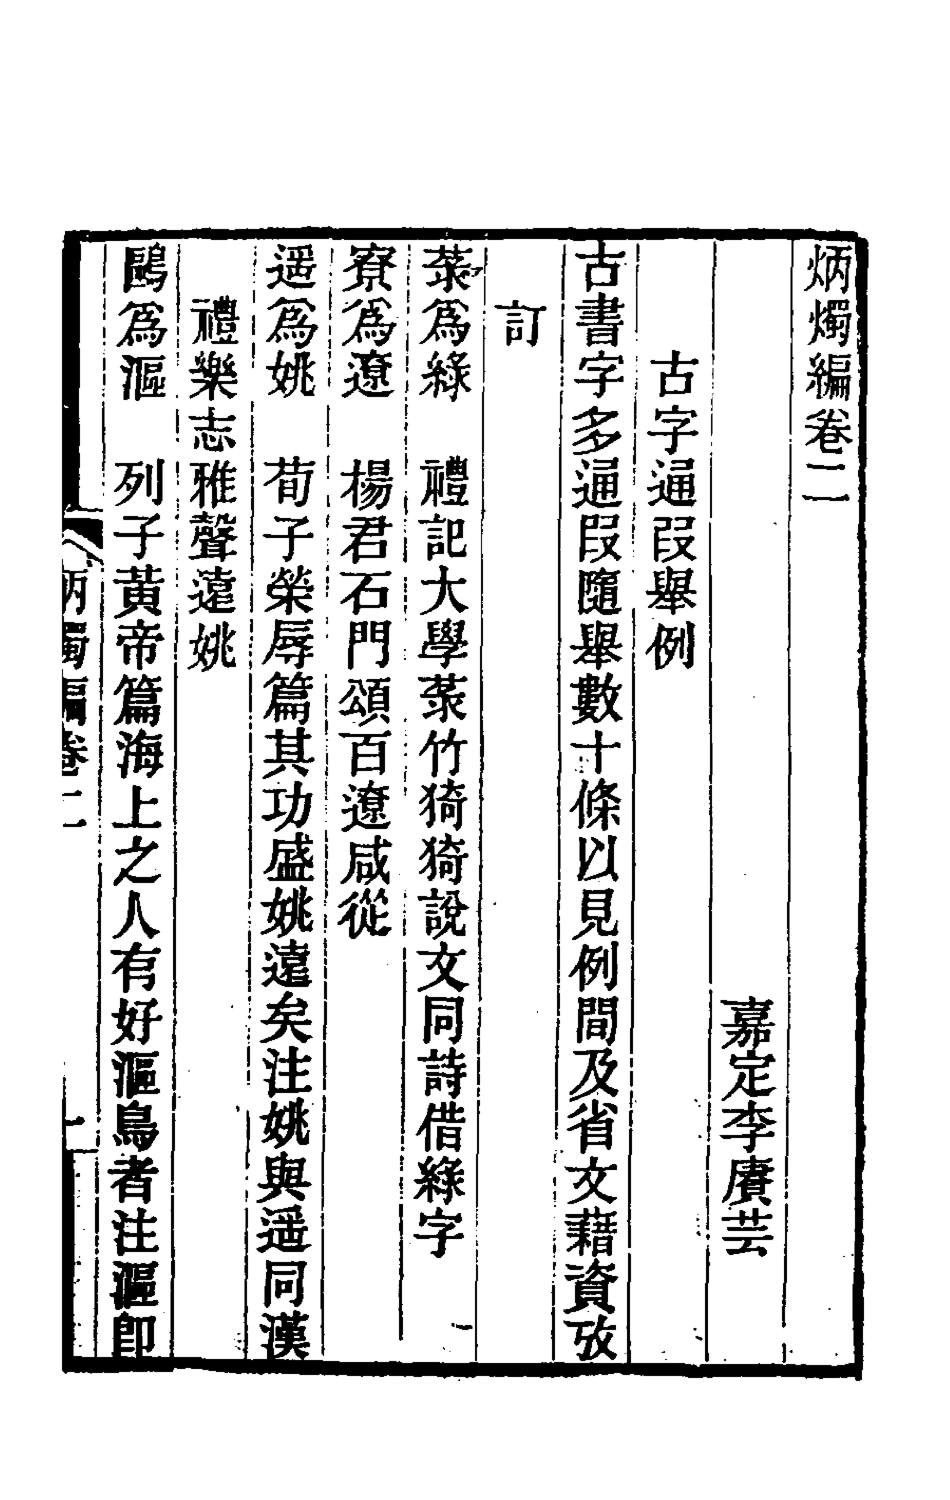 炳燭編卷二
嘉定李賡芸
古字通叚舉例
古書字多通叚隨舉數十條以見例間及省文藉資攷
訂
菉爲綠　禮記大學菉竹猗猗說文同詩借綠字
寮爲遼　楊君石門頌百遼咸從
遥爲姚　荀子榮辱篇其功盛姚遠矣注姚與遥同漢
禮樂志雅聲遠姚
鷗爲漚　列子黃帝篇海上之人有好漚鳥者注漚卽
炳燭編卷二
一